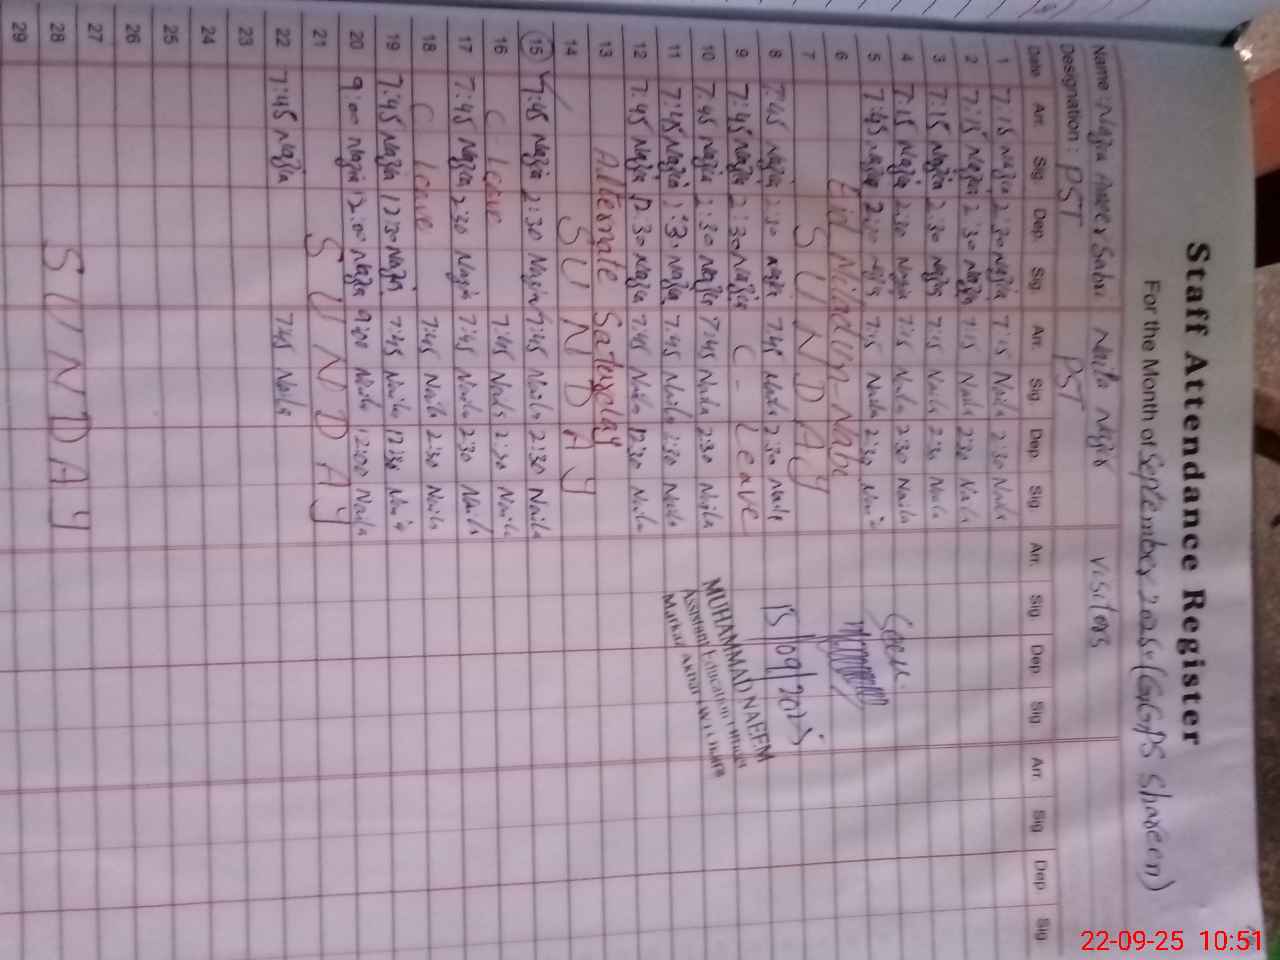 Staff Attendance Register
For the Month of September 2025 (GGPS Shaheen)
Name: Nazia Naila Visitors
Designation: PST PST
Date Arr. Sig Dep. Sig Arr. Sig. Dep. Sig Arr. Sig Dep Sig Arr. Sig Dep Sig
1 7:15 Nazia 2:30 Nazia 7:15 Naila 2:30 Naila
2 7:15 Nazia 2:30 Nazia 7:15 Naila 2:30 Naila
3 7:15 Nazia 2:30 Nazia 7:15 Naila 2:30 Naila
4 7:15 Nazia 2:30 Nazia 7:15 Naila 2:30 Naila
5 7:45 Nazia 2:30 Nazia 7:15 Naila 2:30 Naila
6 Eid Milad un-Nabi
7 SUNDAY
8 7:45 Nazia 2:30 Nazia 7:45 Naila 2:30 Naila
9 7:45 Nazia 2:30 Nazia C- Leave
10 7:45 Nazia 2:30 Nazia 7:45 Naila 2:30 Naila
11 7:45 Nazia 2:30 Nazia 7:45 Naila 2:30 Naila
12 7:45 Nazia 12:30 Nazia 7:45 Naila 12:30 Naila
13 Alternate Saturday
14 SUNDAY
15 7:45 Nazia 2:30 Nazia 7:45 Naila 2:30 Naila
16 C Leave 7:45 Naila 2:30 Naila
17 7:45 Nazia 2:30 Nazia 7:45 Naila 2:30 Naila
18 C Leave 7:45 Naila 2:30 Naila
19 7:45 Nazia 12:30 Nazia 7:45 Naila 12:30 Naila
20 9:00 Nazia 12:00 Nazia 9:00 Naila 12:00 Naila
21 SUNDAY
22 7:45 Nazia 7:45 Naila
23
24
25
26
27
28 SUNDAY
29
Seen
15/09/2025
MUHAMMAD NAEEM
Assistant Education Officer
Markaz
22-09-25 10:51